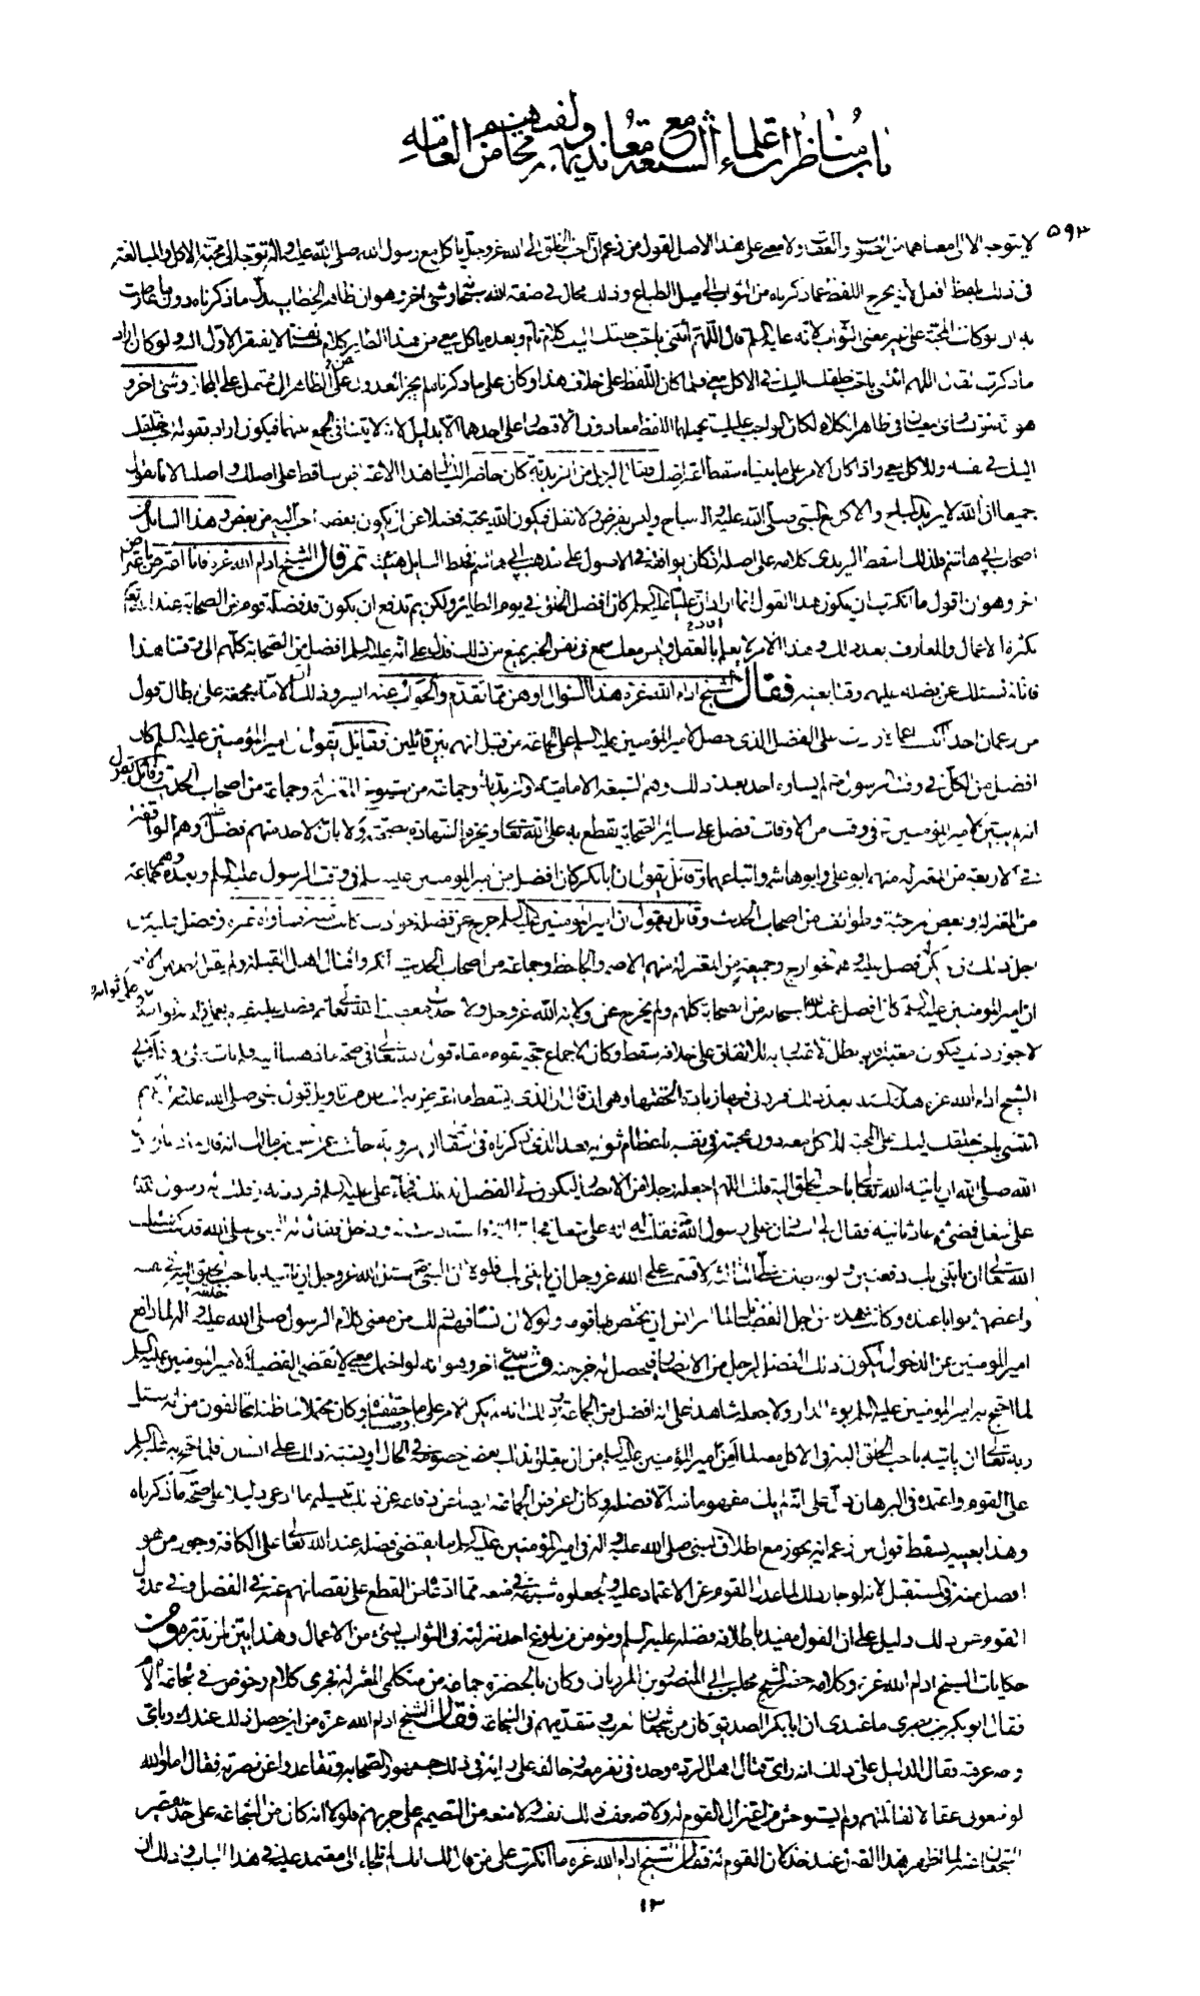 باب مناظرات علماء الشيعة مع معانديهم ولفيفهم من العامة
٥٩٣
لا يتوجه الا الى معناهما من الثواب ولا معنى على هذا الاصل لقول من زعم ان احب الخلق الى الله عز وجل ياكل مع رسول الله صلى الله عليه واله توجه الى محبة الاكل والمبالغة
في ذلك بلفظ افعل لانه يخرج اللفظ عما ذكرناه من الثواب الى ميل الطباع وذلك محال في صفة الله سبحانه وشئ اخر وهو ان ظاهر الخطاب يدل على ما ذكرناه دون ما عارضت
به ان لو كانت المحبة على غير معنى الثواب لانه عليه السلم قال اللهم ائتني باحب خلقك اليك كلام تام وبعده ياكل معي من هذا الطاير كلام مستانف لا يفتقر الاول اليه ولو كان اراد
ما ذكرت لقال اللهم ائتني باحب خلقك اليك في الاكل معي فلما كان اللفظ على خلاف هذا وكان على ما ذكرناه لم يجز العدول عن الظاهر الى محتمل على المجاز وشئ اخر و
هو
اليك في نفسه وللاكل معي واذا كان الامر على ما بيناه سقط اعتراضك فقال الرجل من الزيدية كان حاضرا لنا هذا الاعتراض ساقط على اصلك واصلنا لانا نقول
جميعا ان الله لا يريد المباح والاكل مع النبي صلى الله عليه واله مباح وليس بفرض ولا نفل فيكون الله يحبه فضلا عن ان يكون بعضه احب اليه من بعض وهذا السائل من
اصحاب ابي هاشم فلذلك اسقط الزيدي كلامه على اصله اذ كان يوافقه في الاصول على مذهب ابي هاشم فخلط السايل هنيئة ثم قال الشيخ ادام الله عزه فانا اعترض باعتراض
اخر وهو ان اقول ما انكرت ان يكون هذا القول انما افاد ان عليا عليه السلم كان افضل الخلق في يوم الطائر ولكن بم تدفع ان يكون قد فضله قوم من الصحابة عند الله تعالى
بكثرة الاعمال والمعارف بعد ذلك وهذا الامر لا يعلم بالعقل وليس معك سمع في نفس الخبر يمنع من ذلك فدل على انه عليه السلم افضل من الصحابة كلهم الى وقتنا هذا
فانا لم نسئلك عن فضله عليهم وقتا بعينه فقال الشيخ ادام الله عزه هذا السؤال اوهن مما تقدم والجواب عنه ايسر وذلك ان الامة مجمعة على بطلان قول
من زعم ان احدا اكتسب اعمالا زادت على الفضل الذي حصل لامير المؤمنين عليه السلم على الجماعة من قبل انهم بين قائلين فقائل يقول ان امير المؤمنين عليه السلم كان
افضل من الكل في وقت الرسول ص لم يساوه احد بعد ذلك وهم الشيعة الامامية والزيدية وجماعة من شيوخ المعتزلة وجماعة من اصحاب الحديث وقائل يقول
انه لم يتبين لامير المؤمنين في وقت من الاوقات فضل على سائر الصحابة يقطع به على الله تعالى ويجزم الشهادة بصحته ولا بان لاحد منهم فضل عليه وهم الواقفة
في الاربعة من المعتزلة منهم ابو علي وابو هاشم واتباعهما وقائل يقول ان ابا بكر كان افضل من امير المؤمنين عليه السلم في وقت الرسول عليه السلم وبعده وهم جماعة
من المعتزلة وبعض المرجئة وطوائف من اصحاب الحديث وقائل يقول ان امير المؤمنين عليه السلم خرج عن فضله بحوادث كانت منه فساواه غيره وفضل عليه من
اجل ذلك من لم يكن فضل عليه وهم الخوارج وجماعة من المعتزلة منهم الاصم والجاحظ وجماعة من اصحاب الحديث انكروا قتال اهل القبلة ولم يقل احد من الامة
ان امير المؤمنين عليه السلم كان افضل عند الله سبحانه من الصحابة كلهم ولم يخرج عن ولاية الله عز وجل ولا احدث معصية الله تعالى ثم فضل عليه غيره بعمل زاد به ثوابه على ثوابه و
لا جوز ذلك فيكون معتبرا واذا بطل الاعتبار به للاتفاق على خلافه سقط وكان الاجماع حجة يقوم مقام قول الله تعالى في صحة ما ذهبنا اليه فلم يات بشئ وذاكرني
الشيخ ادام الله عزه هذه المسئلة بعد ذلك فزادني فيها زيادة الحقتها وهي ان قال ان الذي يسقط ما اعترض به السائل من تاويل قول النبي صلى الله عليه واله اللهم
ائتني باحب خلقك اليك على المحبة للاكل معه دون محبته في نفسه باعظام ثوابه بعد الذي ذكرناه في اسقاطه ان الرواية جاءت عن انس بن مالك انه قال لما دعا رسول
الله صلى الله عليه ان ياتيه الله تعالى باحب الخلق اليه قلت اللهم اجعله رجلا من الانصار ليكون لي الفضل بذلك فجاء علي عليه السلم فرددته وقلت له رسول الله
على شغل فمضى ثم عاد ثانية فقال لي استاذن على رسول الله فقلت له انه على شغل فجاء ثالثة فاستاذنت له ودخل فقال له النبي صلى الله عليه قد كنت سئلت
الله تعالى ان ياتيني بك دفعتين ولو ابطات علي الثالثة لاقسمت على الله عز وجل ان ياتيني بك فلولا ان النبي ص سئل الله عز وجل ان ياتيه باحب خلقه اليه في نفسه
واعظمهم ثوابا عنده وكانت هذه من اجل الفضائل لما اثر انس ان يختص بها قومه ولولا ان انسا فهم ذلك من معنى كلام الرسول صلى الله عليه واله لما دافع
امير المؤمنين عن الدخول ليكون ذلك الفضل لرجل من الانصار فيحصل له جزء منه وشئ اخر وهو انه لو احتمل معنى لا يقتضي الفضيلة لامير المؤمنين عليه السلم
لما احتج به امير المؤمنين عليه السلم يوم الدار ولا جعله شاهدا على انه افضل من الجماعة وذلك انه لو لم يكن الامر على ما وصفناه وكان محتملا لما ظنه المخالفون من انه سئل
ربه تعالى ان ياتيه باحب الخلق اليه في الاكل معه لما امن امير المؤمنين عليه السلم من ان يتعلق بذلك بعض خصومه في الحال او يشتبه ذلك على انسان فلما احتج به عليه السلم
على القوم واعتمده في البرهان دل على انه لم يك مفهوما منه الا فضله وكان اعراض الجماعة ايضا عن دفاعه عن ذلك بتسليم ما ادعى دليلا على صحة ما ذكرناه
وهذا بعينه يسقط قول من زعم انه يجوز مع اطلاق النبي صلى الله عليه واله في امير المؤمنين عليه السلم ما يقتضي فضله عند الله تعالى على الكافة وجود من هو
افضل منه في المستقبل لانه لو جاز ذلك لما عدل القوم عن الاعتماد عليه ولجعلوه شبهة في منعه مما ادعاه من القطع على نقصانهم عنه في الفضل وفي عدول
القوم عن ذلك دليل على ان القول مفيد باطلاقه فضله عليه السلم ومؤمن من بلوغ احد منزلته في الثواب بشئ من الاعمال وهذا بين لمن تدبره ومن
حكايات الشيخ ادام الله عزه وكلامه حضر الشيخ مجلس ابي المنصور بن المرزبان وكان بالحضرة جماعة من متكلمي المعتزلة فجرى كلام وخوض في شجاعة الامام
فقال ابو بكر بن صرايا عندي ان ابا بكر الصديق كان من شجعان العرب ومتقدميهم في الشجاعة فقال الشيخ ادام الله عزه من اين حصل ذلك عندك وباي
وجه عرفته فقال الدليل على ذلك انه راى قتال اهل الردة وحده في نفر معه وخالفه على رايه في ذلك جمهور الصحابة وتقاعدوا عن نصرته فقال اما والله
لو منعوني عقالا لقاتلتهم ولم يستوحش من اعتزال القوم له ولا ضعف ذلك نفسه ولا منعه من التصميم على حربهم فلولا انه كان من الشجاعة على حد يقصر
الشجعان عنه لما اظهر هذا القول عند خذلان القوم له فقال الشيخ ادام الله عزه ما انكرت على من قال لك انك لم تلجاء الى معتمد عليه في هذا الباب وذلك ان
١٣